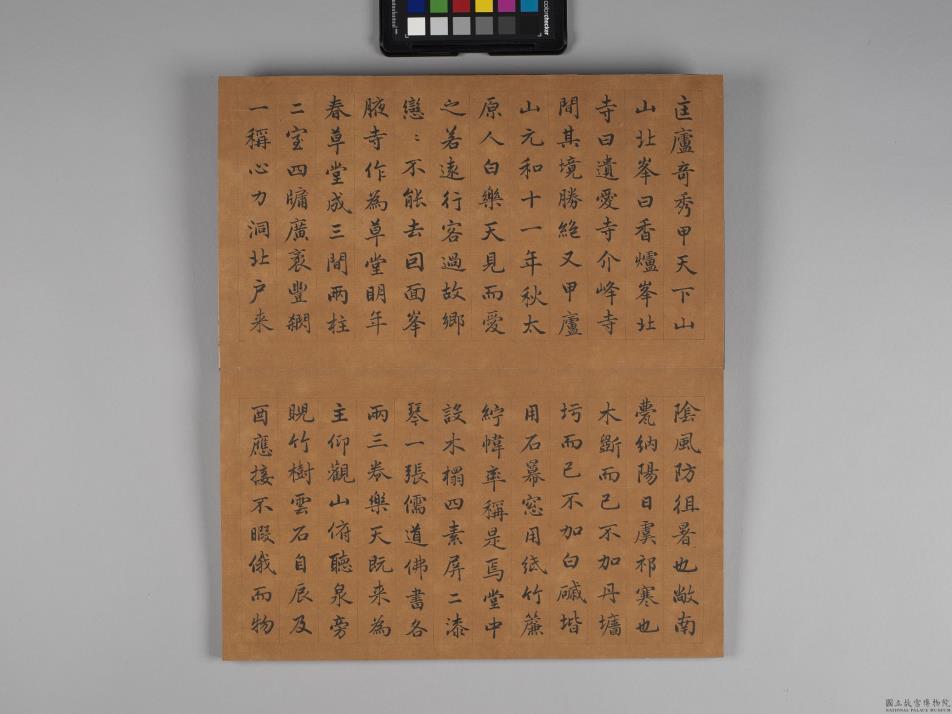 匡廬奇秀甲天下山
山北峯曰香爐峯北
寺曰遺愛寺介峰寺
間其境勝絶又甲廬
山元和十一年秋太
原人白樂天見而愛
之若遠行客過故鄉
戀〻不能去因面峯
腋寺作為草堂明年
春草堂成三間兩柱
二室四牖廣袤豐
一稱心力洞北户来
陰風防徂暑也敞南
甍納陽日虞祁寒也
木斲而已不加丹墻
圬而已不加白磩堦
用石冪窓用紙竹簾
紵幃率稱是焉堂中
設木榻四素屏二漆
琴一張儒道佛書各
兩三卷樂天既来為
主仰觀山俯聽泉旁
睨竹樹雲石自辰及
酉應接不暇俄而物
colorchecker
國立故宮博物院
NATIONAL PALACE MUSEUM